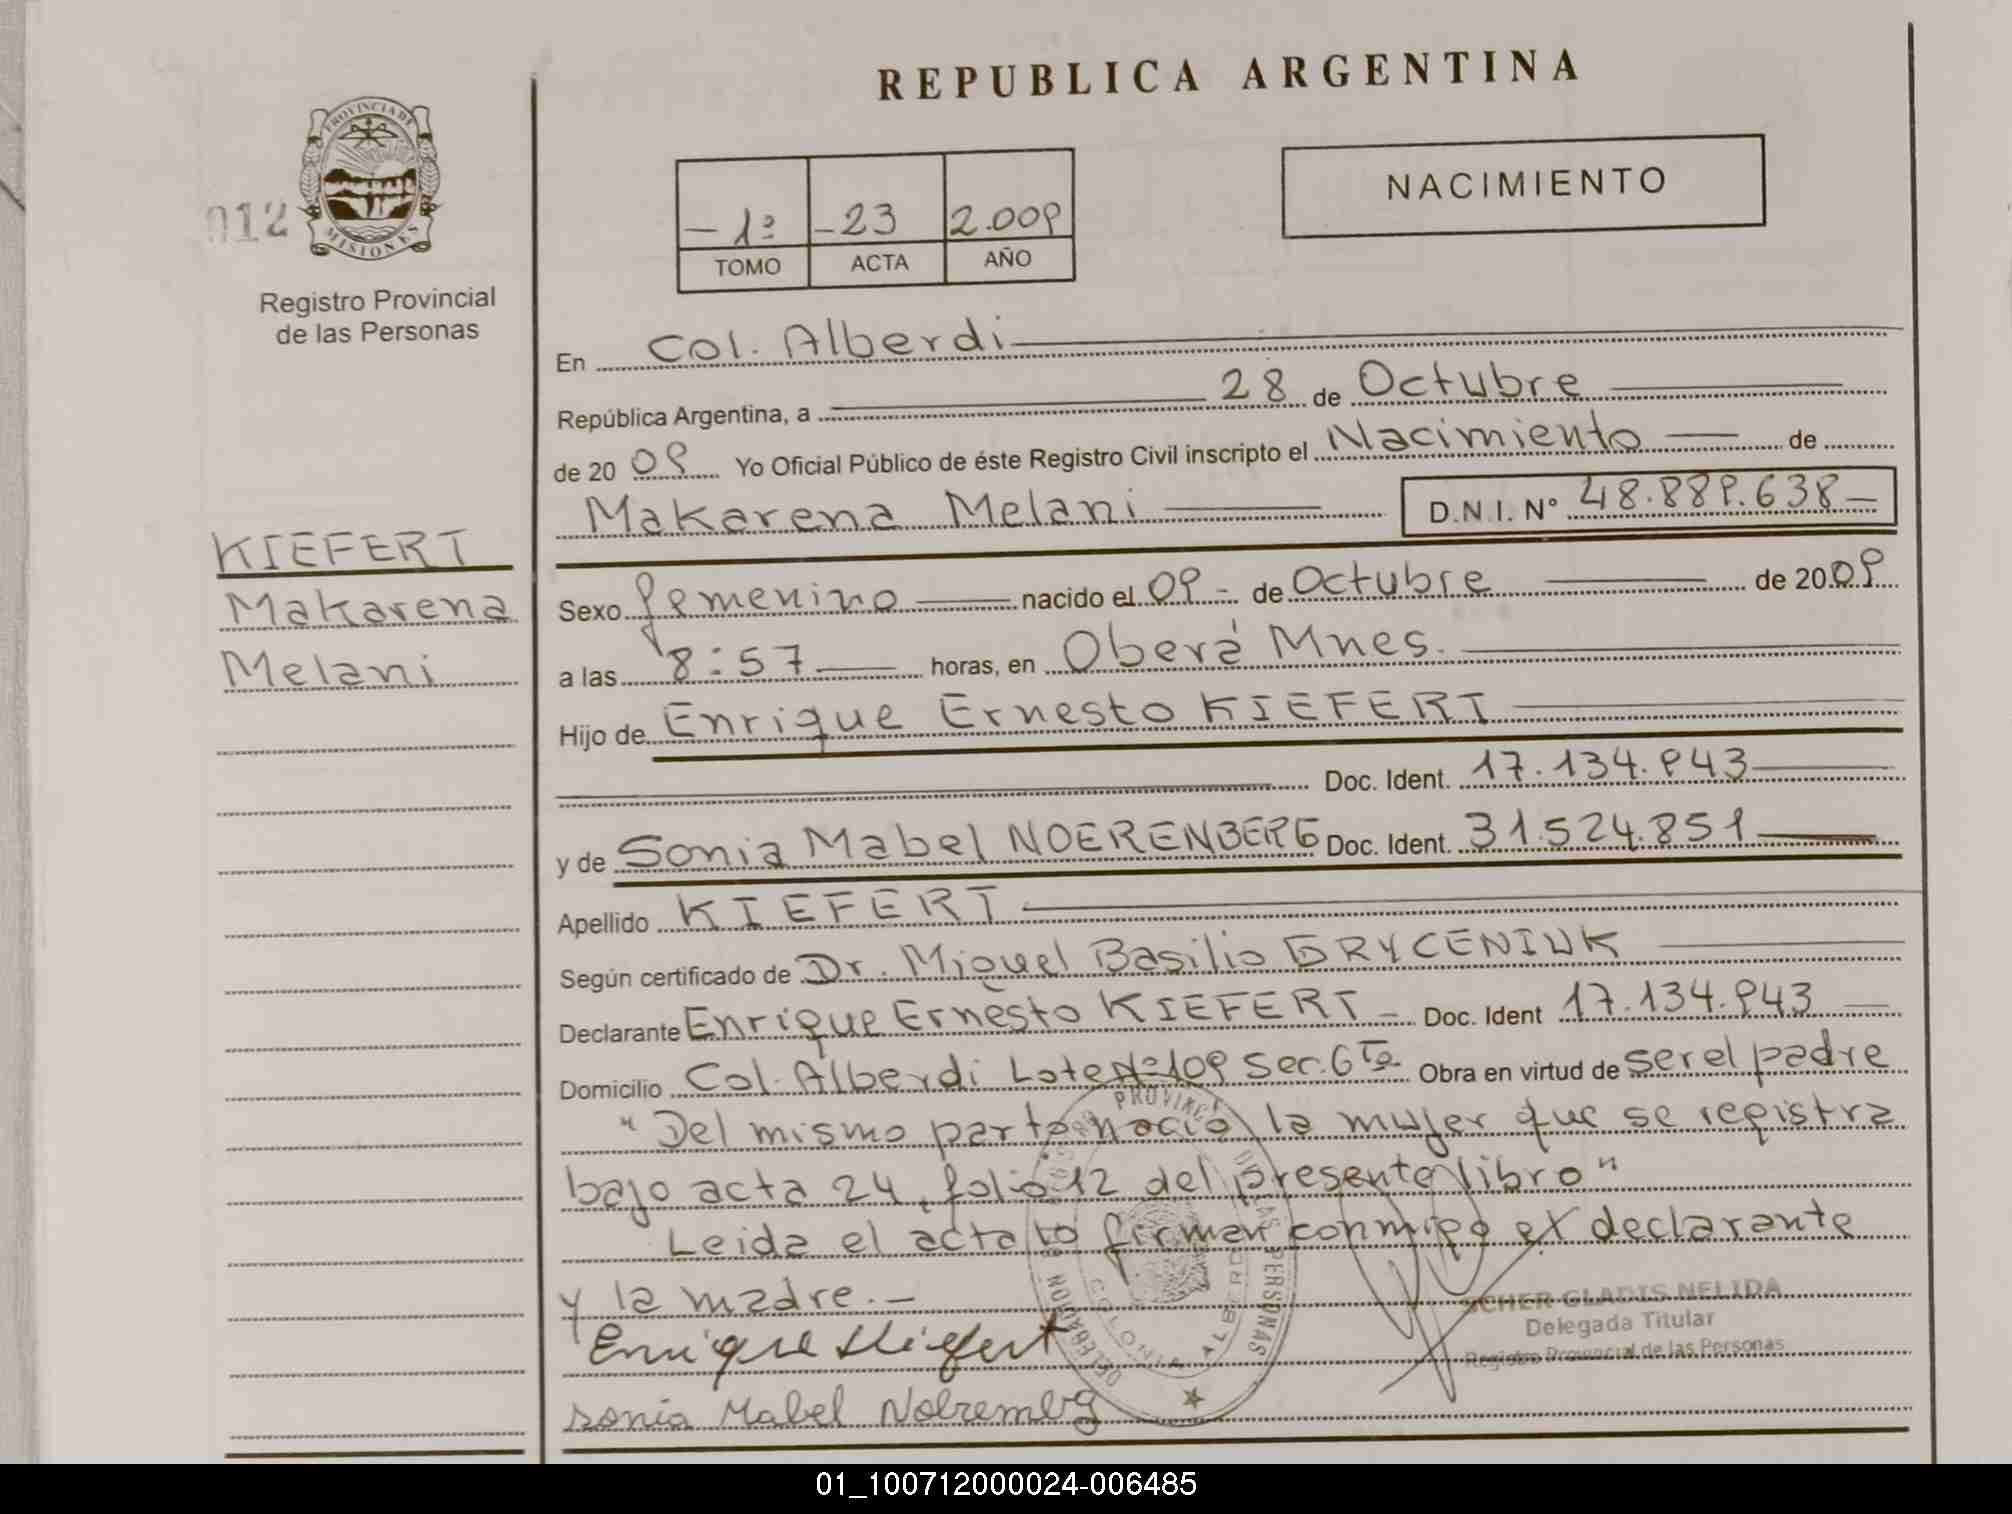 REPUBLICA ARGENTINA
PROVINCIA DE
MISIONES
012
Registro Provincial
de las Personas
- 1ª -23 2.009
TOMO ACTA AÑO
NACIMIENTO
En Col. Alberdi
República Argentina, a 28 de Octubre
de 20 09 Yo Oficial Público de éste Registro Civil inscripto el Nacimiento de
Makarena Melani D.N.I. Nº 48.889.638-
KIEFERT
Makarena
Melani
Sexo femenino nacido el 09- de Octubre de 2009
a las 8:57 horas, en Oberá Mnes.
Hijo de Enrique Ernesto KIEFERT
Doc. Ident. 17.134.943
y de Sonia Mabel NOERENBERG Doc. Ident. 31.524.851
Apellido KIEFERT
Según certificado de Dr. Miguel Basilio GRYCENIUK
Declarante Enrique Ernesto KIEFERT - Doc. Ident 17.134.943
Domicilio Col. Alberdi Lote Nº109 Sec. 6ta Obra en virtud de ser el padre
"Del mismo parto nació la mujer que se registra
bajo acta 24, folio 12 del presente libro"
Leida el acta la firman conmigo el declarante
y la madre.-
Enrique Kiefert
Sonia Mabel
PROVINCIAL DE LAS PERSONAS
COLONIA ALBERDI
SCHER GLADIS NELIDA
Delegada Titular
Registro Provincial de las Personas
01_100712000024-006485